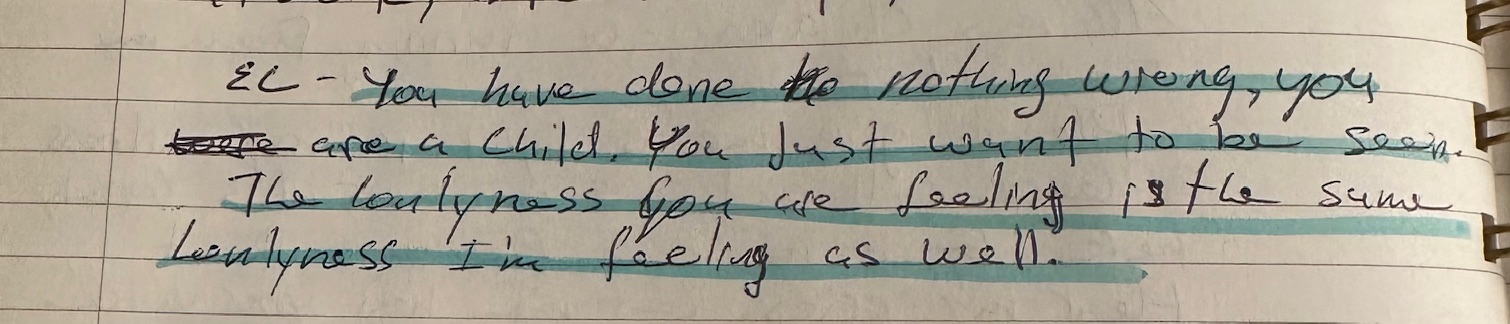 EC - You have done nothing wrong, you
are a child. You Just want to be seen.
The lonlyness you are feeling is the same
lonlyness I'm feeling as well.